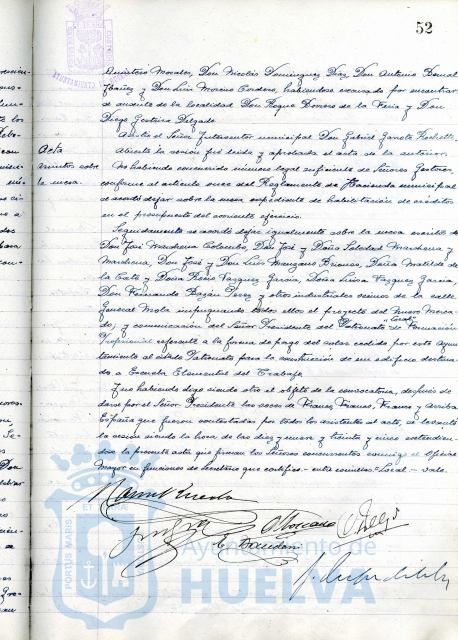 52
Quintero Morales, Don Nicolás Domínguez Díaz, Don Antonio Domal
Ibáñez y Don Luis Moreno Cordero, habiéndose excusado por encontrar
se ausente de la localidad Don Roque Donoro de la Feria y Don
Diego Gestera Delgado.
Asiste el Señor Interventor municipal Don Gabriel
Abierta la sesión fué leída y aprobada el acta de la anterior.
Acta
No habiendo concurrido número legal suficiente de Señores Gestores,
asuntos sobre
conforme al artículo once del Reglamento de Hacienda municipal
la mesa.
se acordó dejar sobre la mesa expediente de habilitación de créditos
en el presupuesto del corriente ejercicio.
Seguidamente se acordó dejar igualmente sobre la mesa escritos de
Don José Marchena Colombo, Don José y Doña Soledad Marchena y
Marchena, Don José y Don Luis Manzano Brioness, Doña Matilde de
la Corte y Doña Rocío Vazquez García, Doña Luisa Vazquez García,
Don Fernando Bazán Perez y otros industriales vecinos de la calle
General Mola impugnando todos ellos el proyecto del Nuevo Merca-
do, y comunicación del Señor Presidente del Patronato Local de Formación
Profesional referente a la forma de pago del solar cedido por este Ayun
tamiento al citado Patronato para la construcción de un edificio destina
do a Escuela Elemental del Trabajo.
Y no habiendo sido otro el objeto de la convocatoria, después de
darse por el Señor Presidente las voces de Franco, Franco, Franco y Arriba
España que fueron contestadas por todos los asistentes al acto, se levantó
la sesión siendo la hora de las diez y nueve y treinta y cinco extendién-
dose la presente acta que firman los Señores concurrentes conmigo el Oficial
Mayor en funciones de Secretario que certifico.- entre renglones - Local - vale.
Ayuntamiento de
HUELVA
PORTUS MARIS